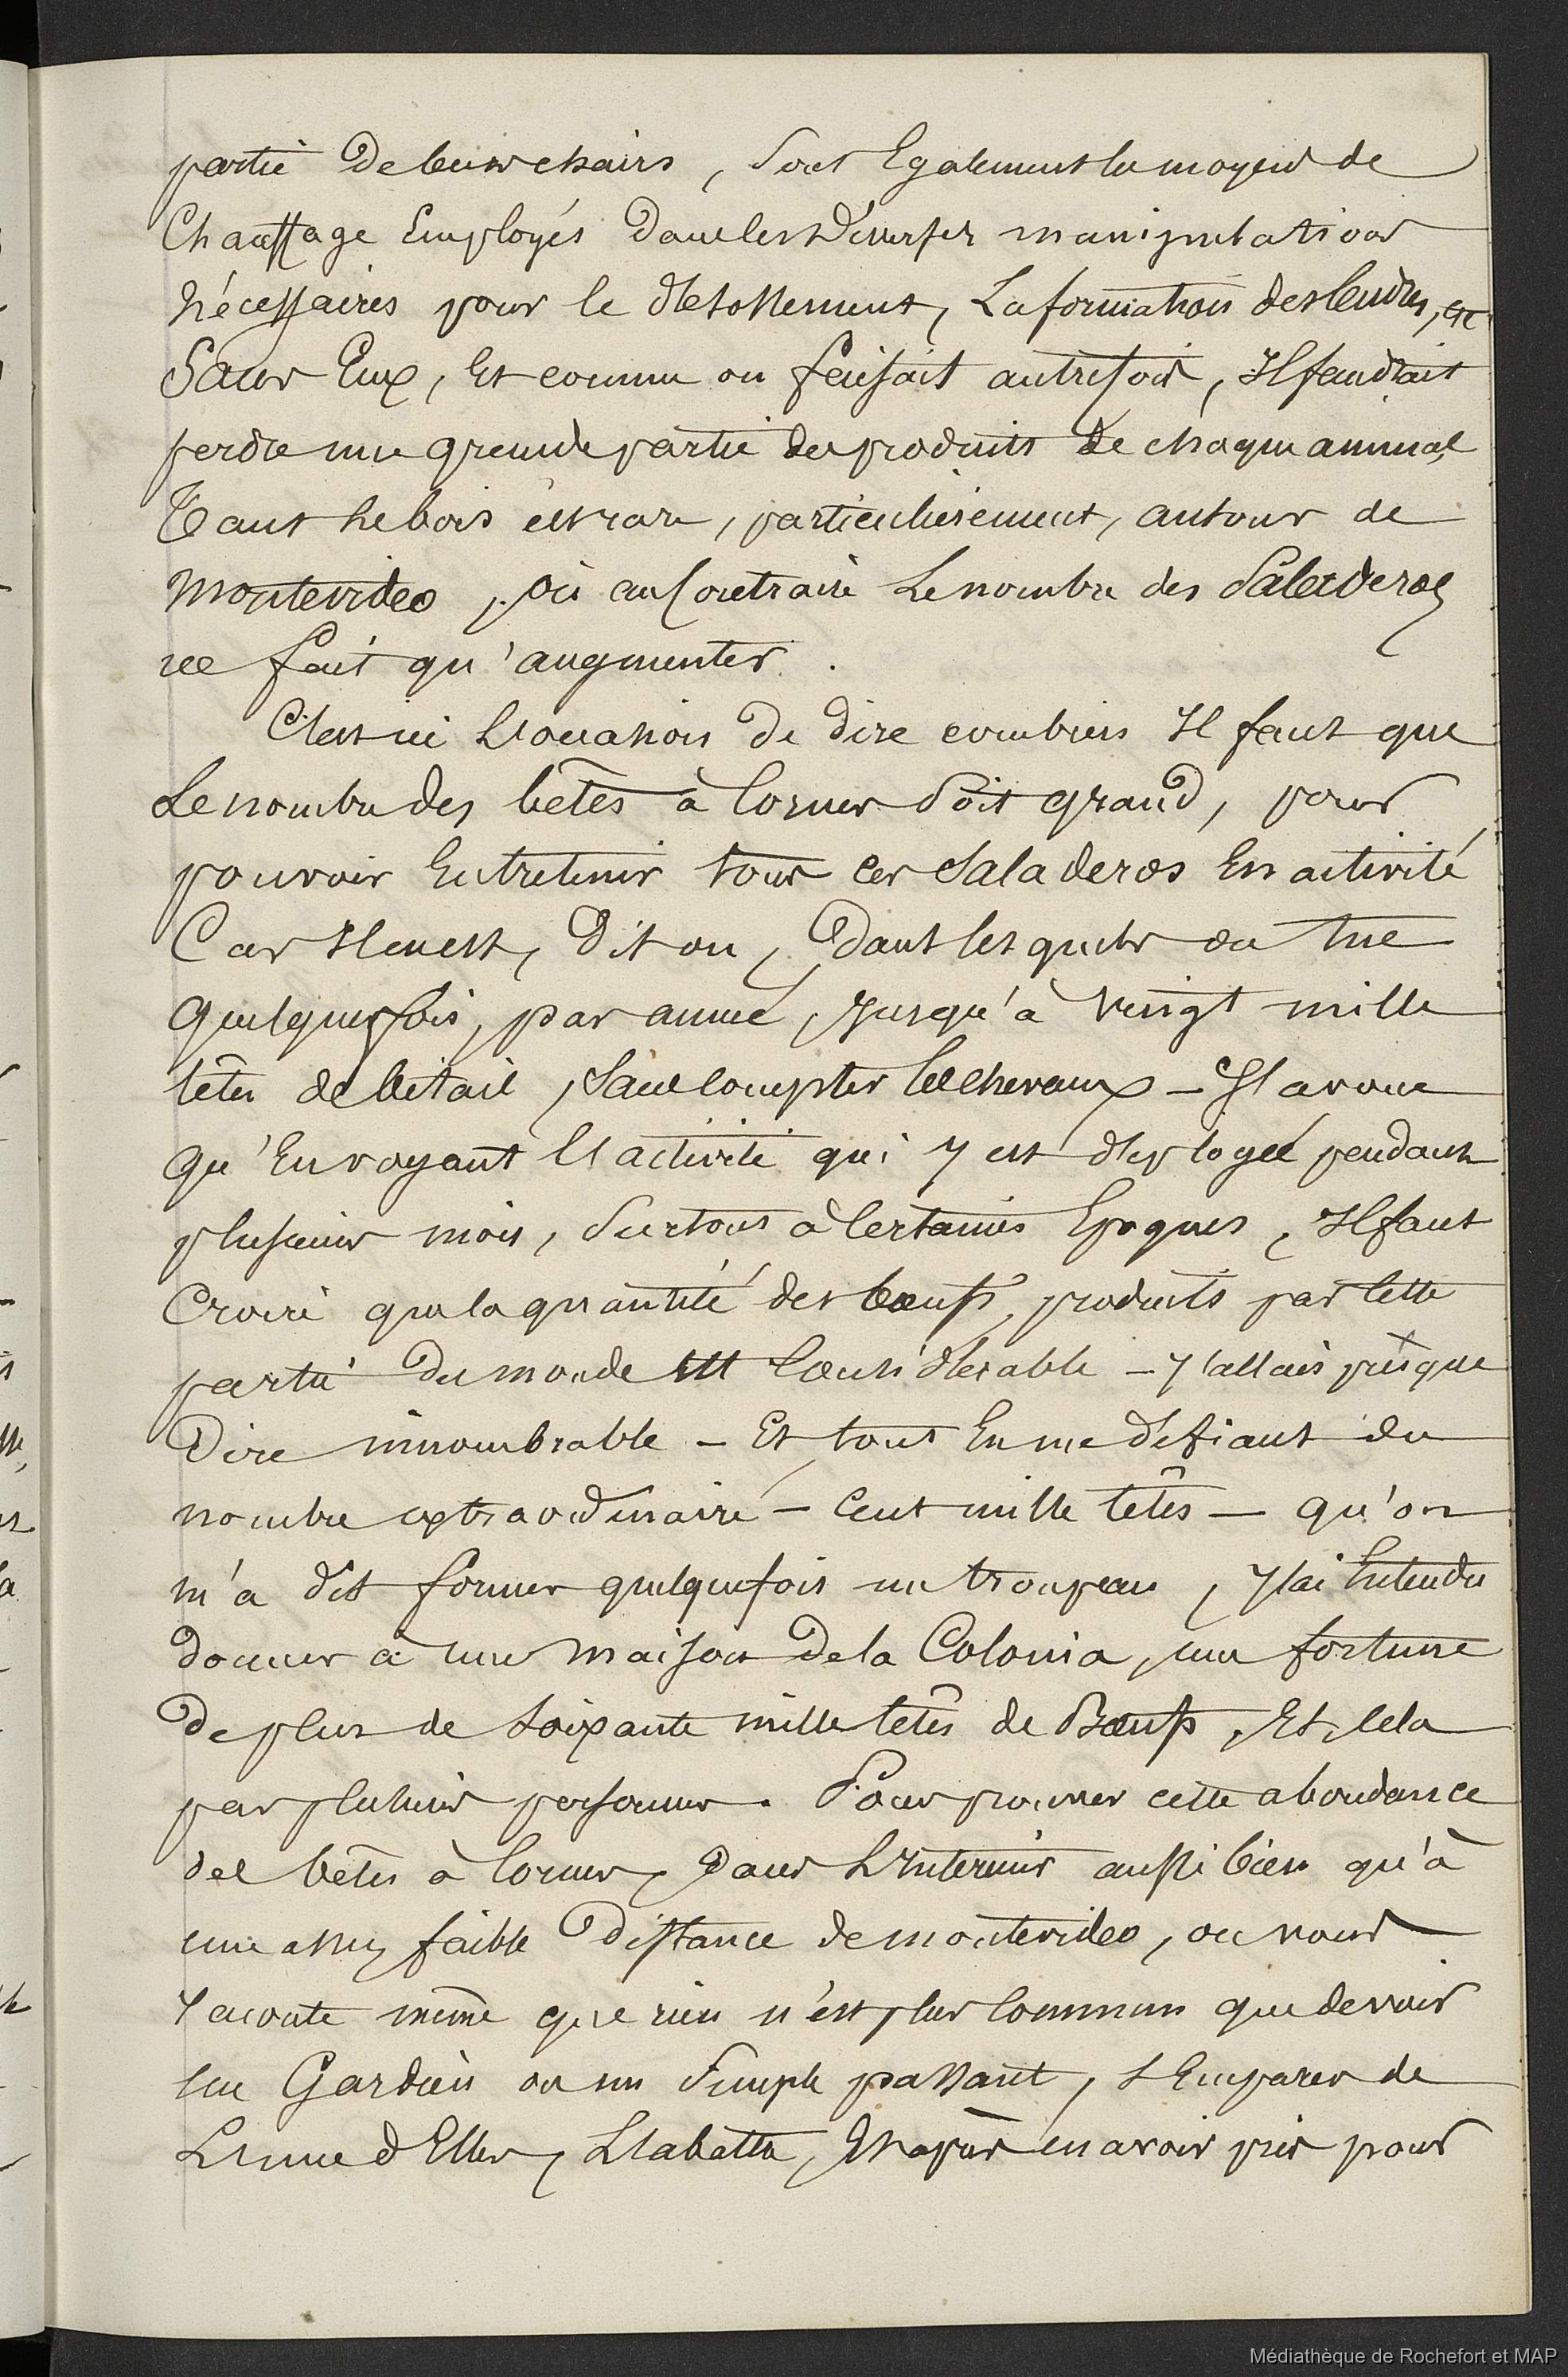 partie de leurs chairs, sont Egalement le moyen de
Chauffage Employés dans les diverses manipulations
Nécessaires pour le dessossement, La formation des Cendres, etc
Sans Eux, Et comme on faisait autrefois, Il faudrait
perdre une grande partie des produits de chaque animal,
Tant le bois est rare, particulièrement, autour de
Montevideo, où au Contraire Le nombre des Saladeros
ne fait qu'augmenter.
C'est ici L'occasion de dire combien Il faut que
Le nombre des bêtes à Cornes Soit grand, pour
pouvoir Entretenir tous ces Saladeros En activité
Car Il en est, dit on, dans lesquels on tue
quelquefois, par année, Jusqu'à Vingt mille
têtes de bétail, Sans Compter les chevaux – J'avoue
qu'En voyant L'activité qui y est déployée pendant
plusieurs mois, Surtout à Certaines Epoques, Il faut
Croire que la quantité des bœufs, produits par Cette
partie du monde est Considérable – J'allais presque
Dire innombrable – Et tout En me défiant du
nombre extraordinaire – Cent mille têtes – qu'on
m'a dit former quelquefois un troupeau, J'ai Entendu
donner à une Maison de la Colonia, une fortune
de plus de Soixante mille têtes de Bœufs, Et Cela
par plusieurs personnes. Pour prouver cette abondance
des bêtes à Cornes, dans L'Intérieur aussi bien qu'à
une assez faible distance de Montevideo, on vous
raconte même que rien n'est plus Commun que de voir
un Gardien ou un Simple passant, S'Emparer de
L'une d'Elles, L'abattre, Et après en avoir pris pour
Médiathèque de Rochefort et MAP